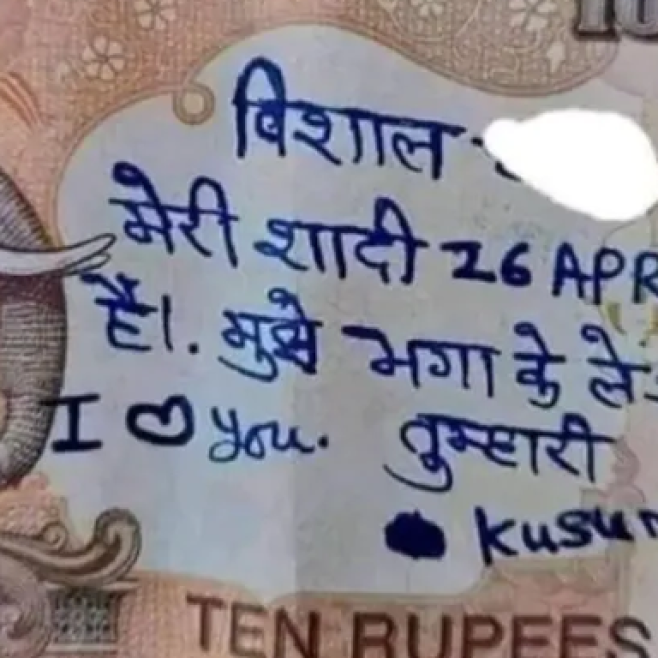 विशाल
मेरी शादी 26 APR
है। मुझे भगा के ले
I ♡ you. तुम्हारी
Kusum
TEN RUPEES